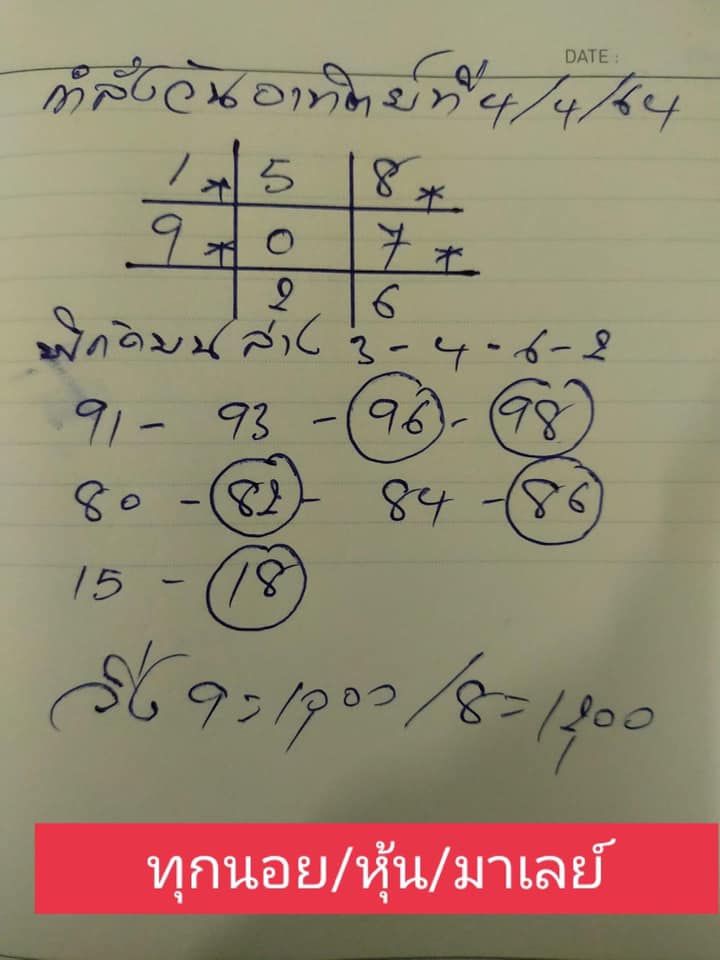 DATE :
กำลังวันอาทิตย์ที่ 4/4/64
1* 5 8*
9* 0 7*
2 6
พิกัดบน ล่าง 3 - 4 - 6 - 2
91 - 93 - 96 - 98
80 - 82 - 84 - 86
15 - 18
วิ่ง 9 = 1,000 / 8 = 1,200
ทุกนอย/หุ้น/มาเลย์